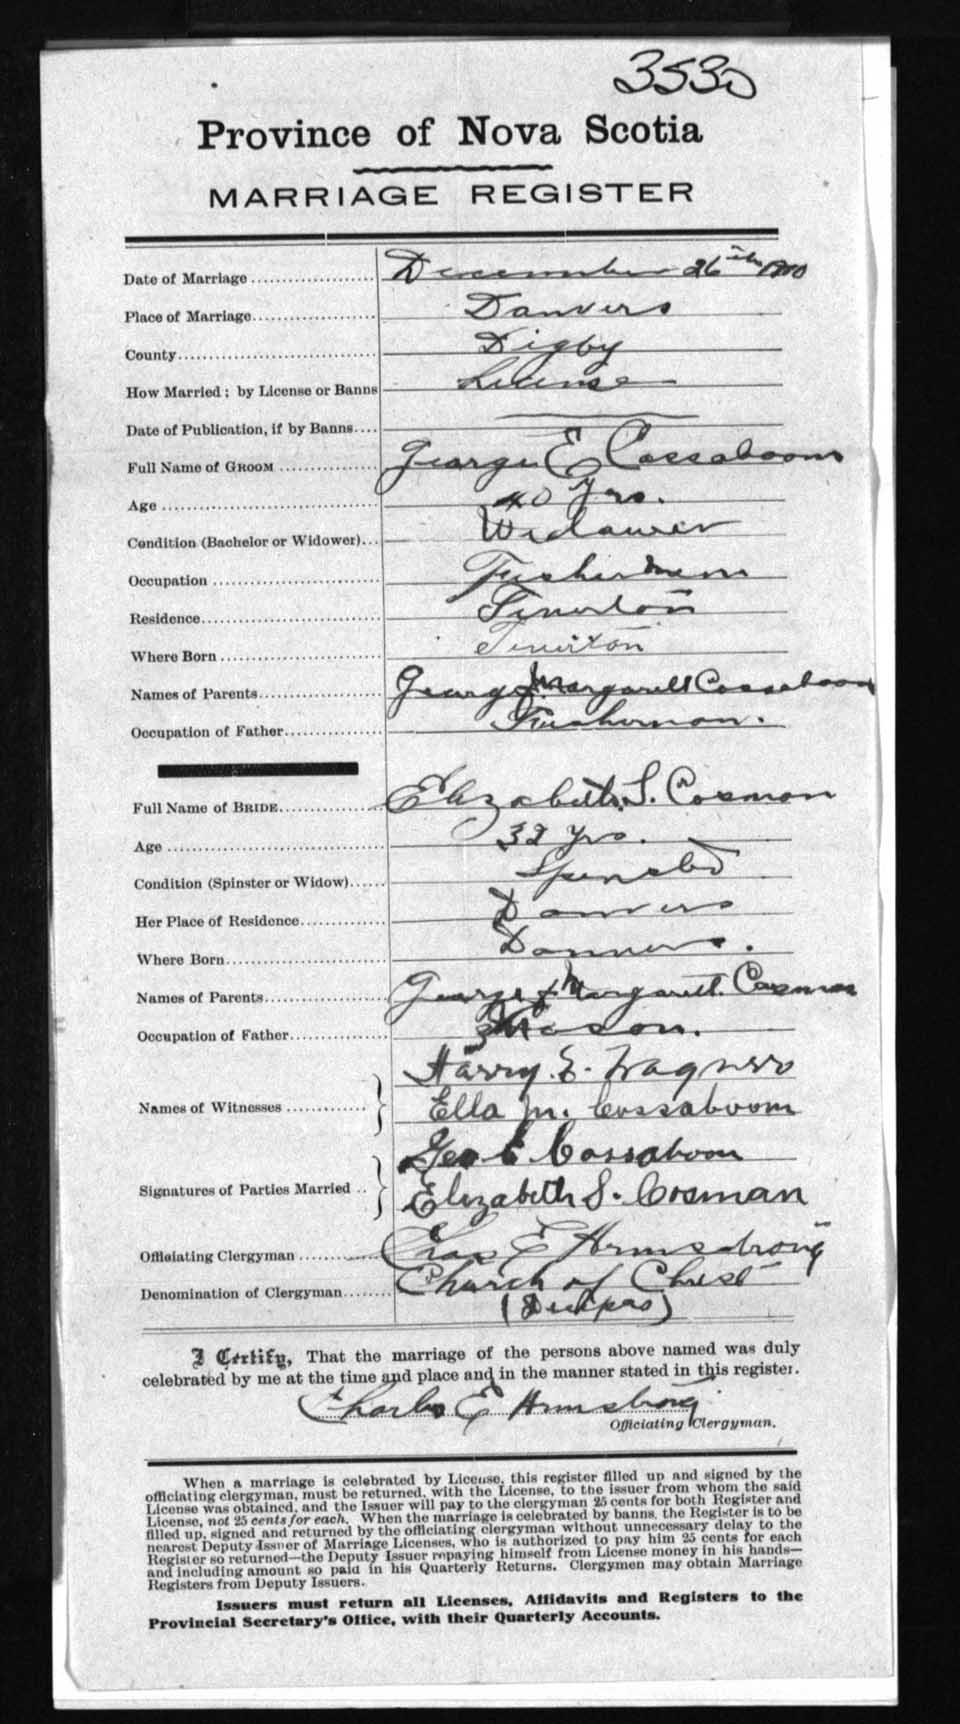 3530
Province of Nova Scotia
MARRIAGE REGISTER
Date of Marriage December 26th
Place of Marriage Danvers
County Digby
How Married; by License or Banns License
Date of Publication, if by Banns
Full Name of GROOM George E Cossaboom
Age 40 Yrs.
Condition (Bachelor or Widower) Widower
Occupation Fisherman
Residence Tiverton
Where Born Tiverton
Names of Parents George & Margarett Cossaboom
Occupation of Father Fisherman.
Full Name of BRIDE Elizabeth S. Cosman
Age 32 yrs.
Condition (Spinster or Widow) Spinster
Her Place of Residence Danvers
Where Born Danvers.
Names of Parents George & Margarett. Cosman
Occupation of Father Mason.
Harry. E.
Names of Witnesses
Ella M. Cossaboom
Geo E. Cossaboom
Signatures of Parties Married
Elizabeth S. Cosman
Officiating Clergyman Chas E Armstrong
Denomination of Clergyman Church of Christ
I Certify, That the marriage of the persons above named was duly
celebrated by me at the time and place and in the manner stated in this register.
Charles E Armstrong
Officiating Clergyman.
When a marriage is celebrated by License, this register filled up and signed by the
officiating clergyman, must be returned, with the License, to the issuer from whom the said
License was obtained, and the Issuer will pay to the clergyman 25 cents for both Register and
License, not 25 cents for each. When the marriage is celebrated by banns, the Register is to be
filled up, signed and returned by the officiating clergyman without unnecessary delay to the
nearest Deputy Issuer of Marriage Licenses, who is authorized to pay him 25 cents for each
Register so returned—the Deputy Issuer repaying himself from License money in his hands—
and including amount so paid in his Quarterly Returns. Clergymen may obtain Marriage
Registers from Deputy Issuers.
Issuers must return all Licenses, Affidavits and Registers to the
Provincial Secretary's Office, with their Quarterly Accounts.